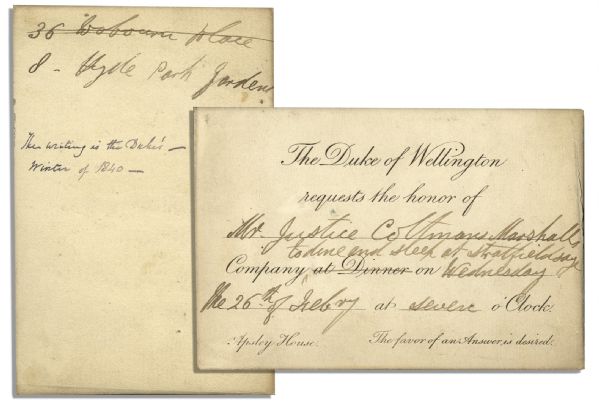 36 Woburn Place
8 - Hyde Park Gardens
The writing is the Duke's —
Winter of 1840 —
The Duke of Wellington
requests the honor of
Mr. Justice Coltmans Marshalls
to dine and sleep at Stratfieldsaye
Company at Dinner on Wednesday
the 26th of Febry at seven o'Clock.
Apsley House. The favor of an Answer is desired.